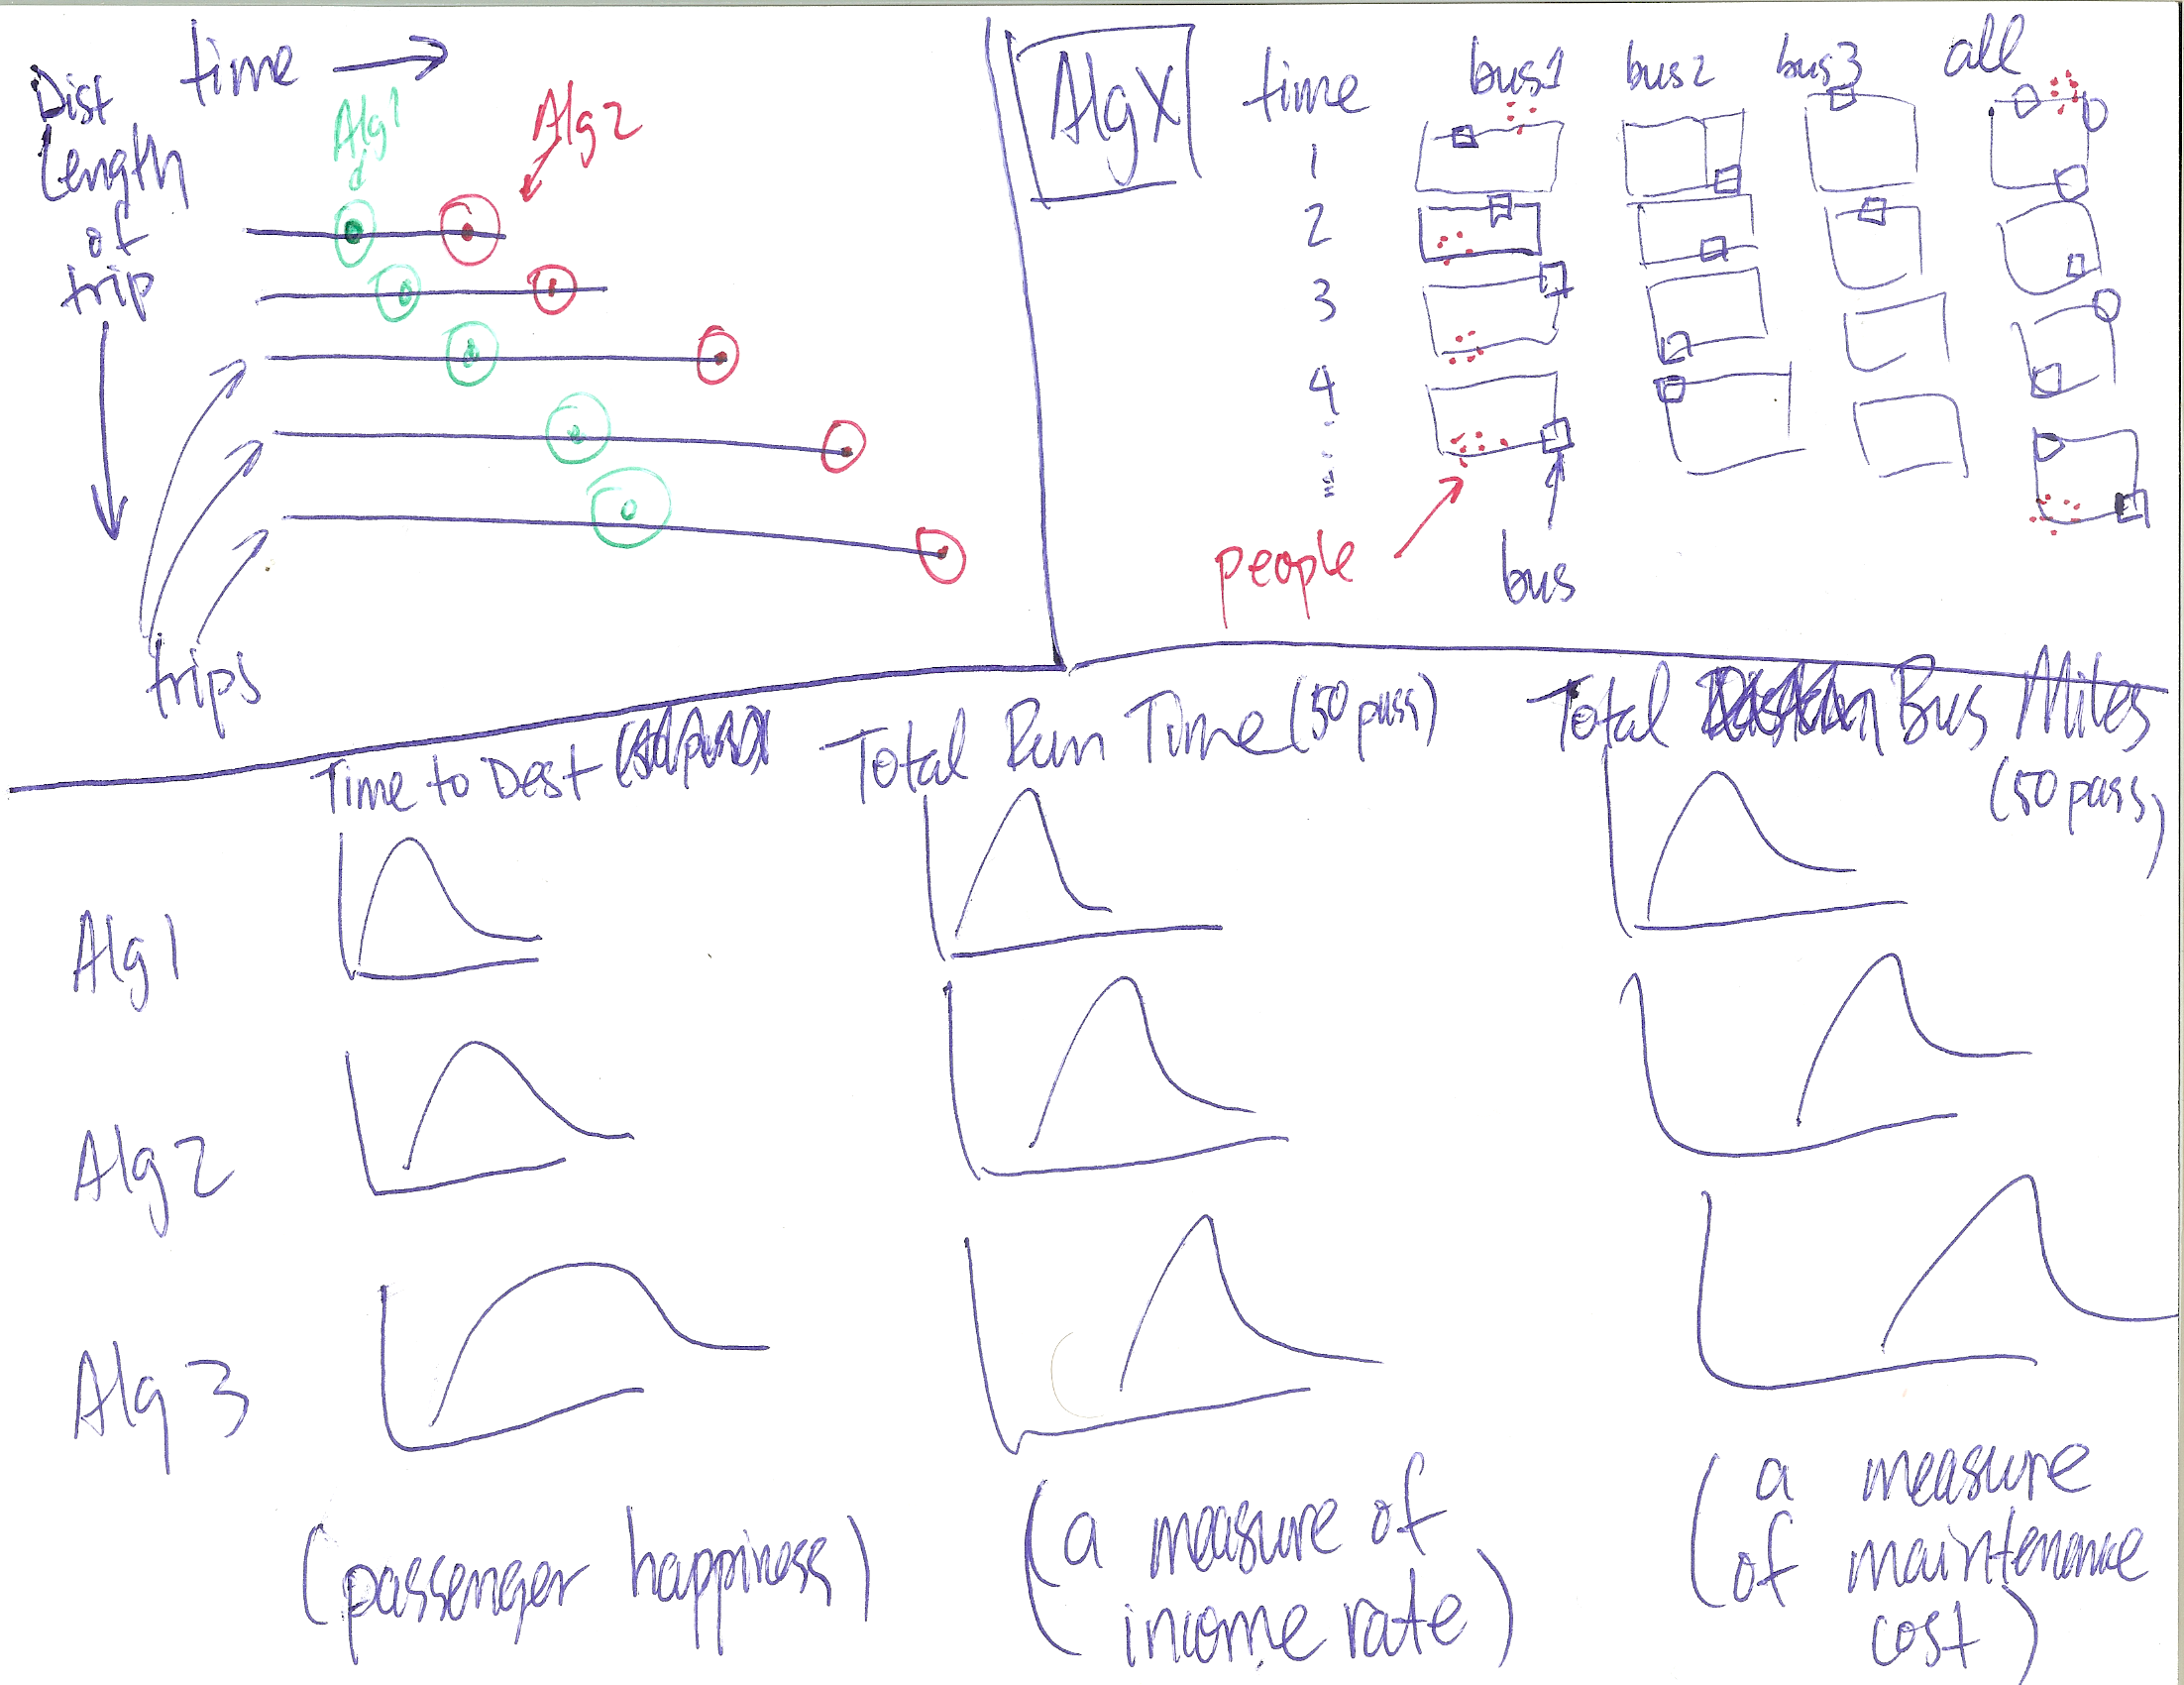 time →
Dist
Length
of
trip
Alg1
Alg2
trips
Alg X
time
bus1
bus2
bus3
all
1
2
3
4
people
bus
Time to Dest
Total Run Time (50 pass)
Total Bus Miles
(50 pass)
Alg 1
Alg 2
Alg 3
(passenger happiness)
(a measure of
income rate)
(a measure
of maintenance
cost)